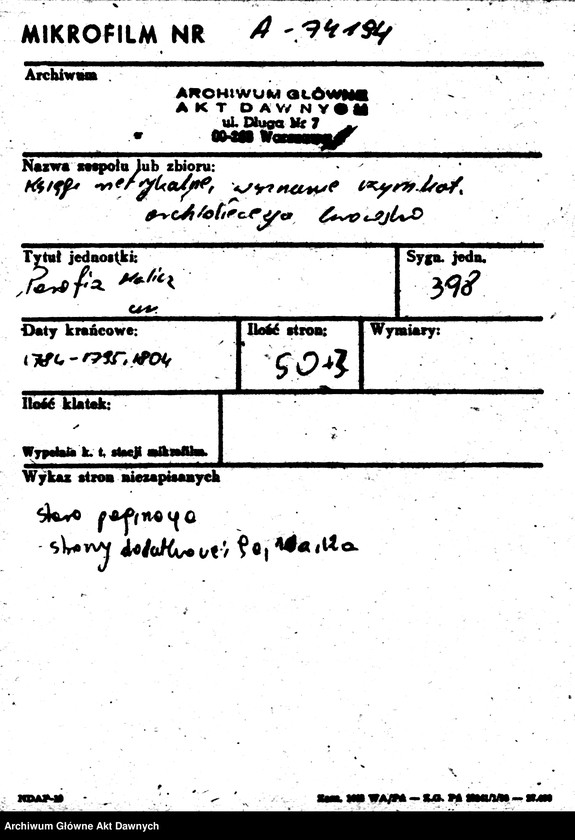 MIKROFILM NR A-74194
Archiwum
ARCHIWUM GŁÓWNE
AKT DAWNYCH
ul. Długa Nr 7
Nazwa zespołu lub zbioru:
Księgi metrykalne, wyznanie rzym.kat.
Tytuł jednostki:
Parafia Halicz
Sygn. jedn.
398
Daty krańcowe:
1784-1795, 1804
Ilość stron:
50+3
Wymiary:
Ilość klatek:
Wypełnia k. t. stacji mikrofilm.
Wykaz stron niezapisanych
stara paginacja
strony dodatkowe:
NDAP-
Archiwum Główne Akt Dawnych